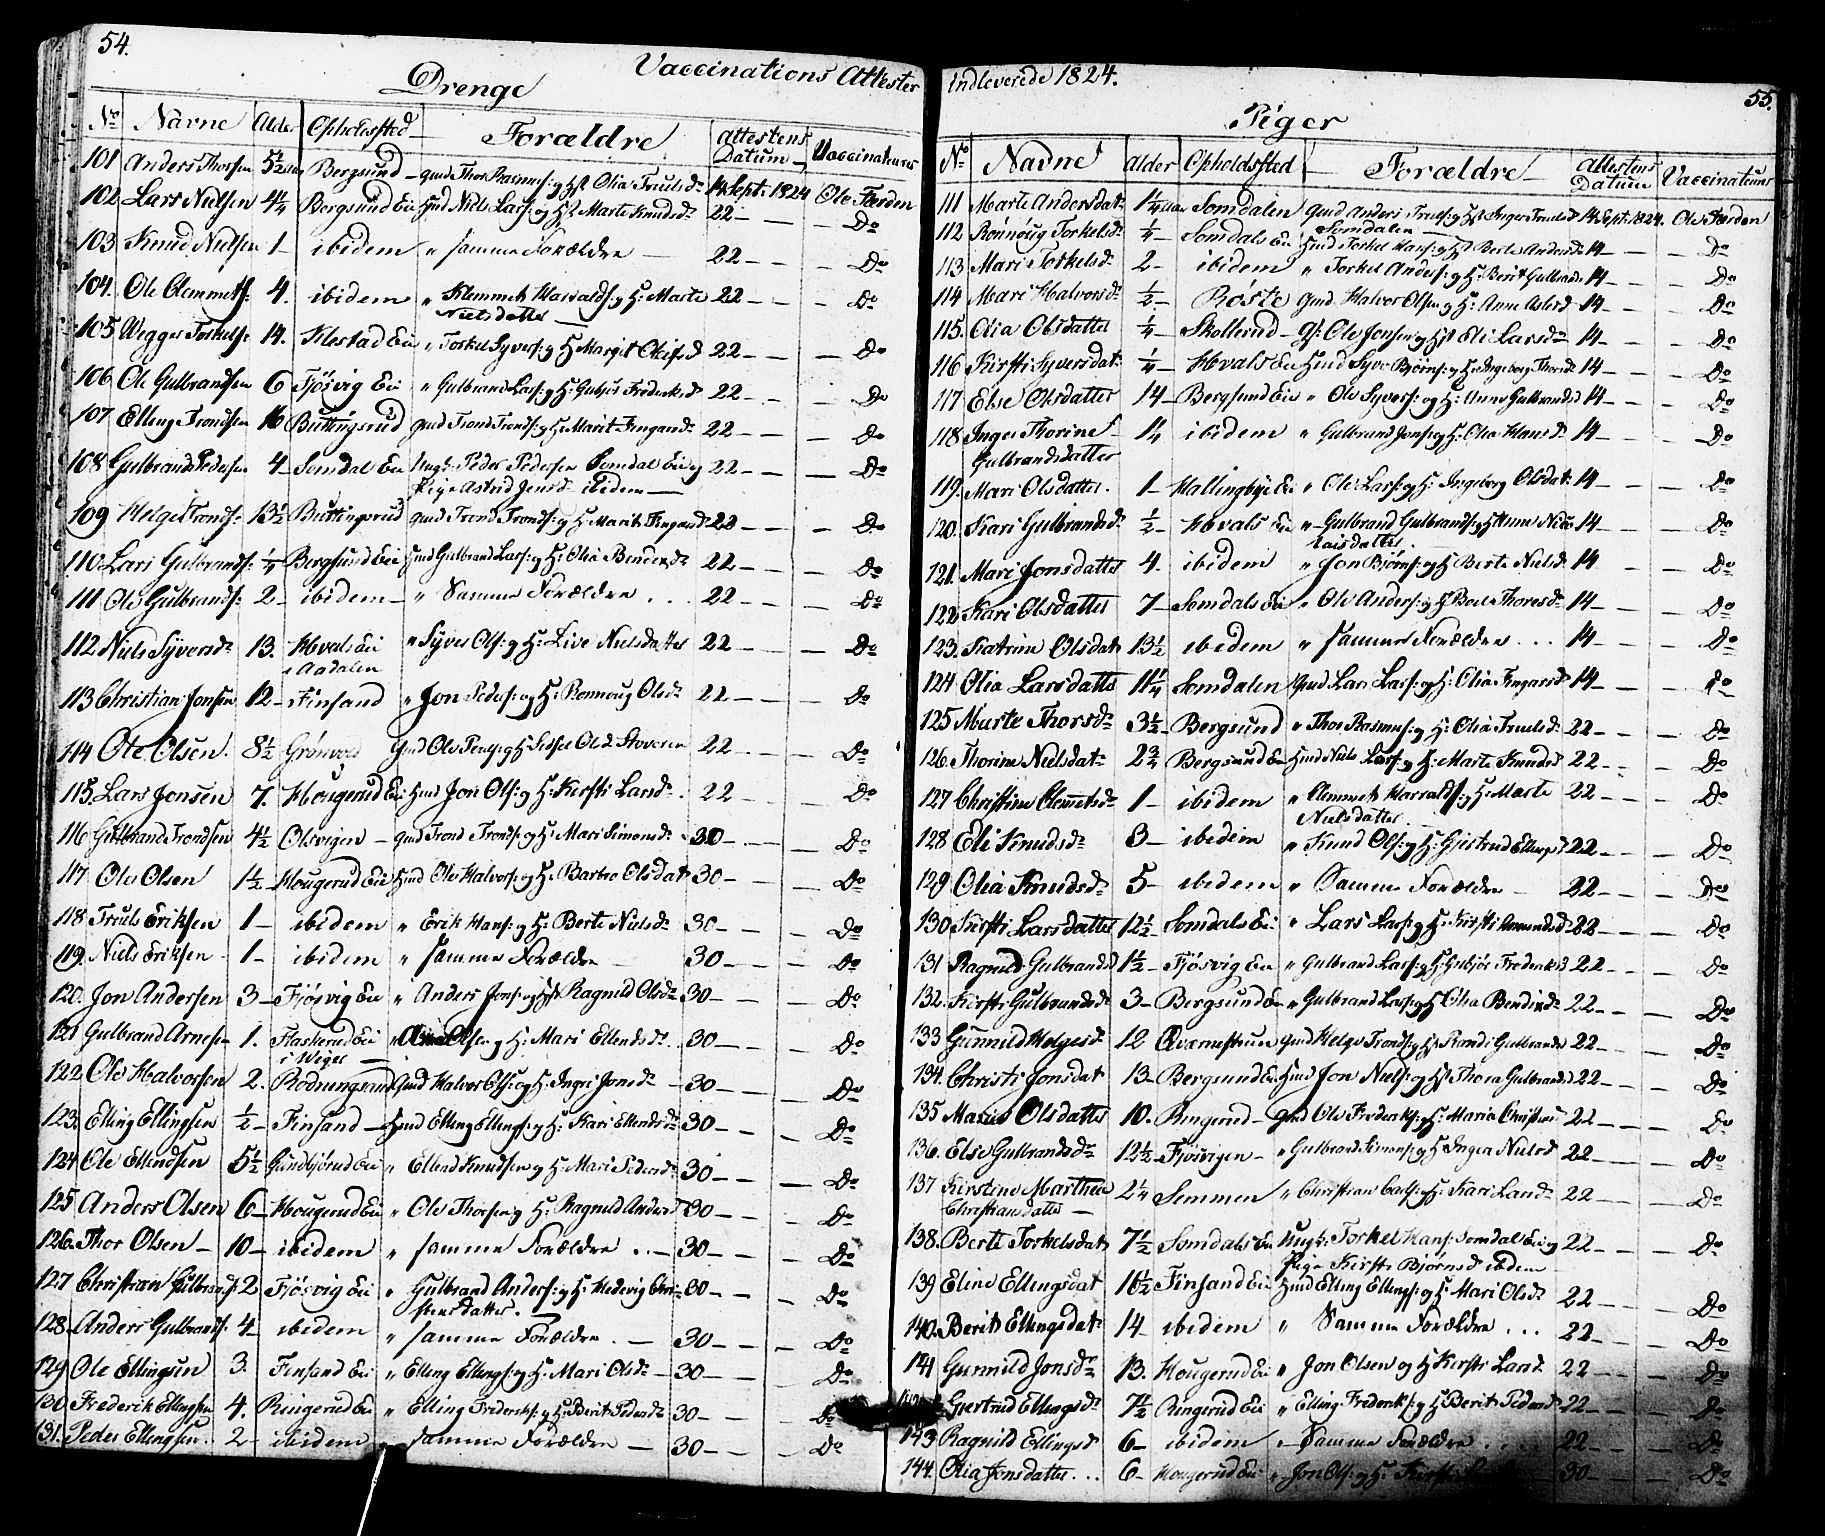 54.
Vaccinations Attester
Drenge
No Navne Alder Opholdssted Forældre Attestens Datum Vaccinateurs
101 Anders Thorsen 5½ Bergsund Gmd Thor Rasmus: og Hst Olia Truulsdr 14 Sept: 1824 Ole Færden
102 Lars Nielsen 4¼ Bergsund Eie Hmd Niels Lars: og Hst Marte Knudsdr 22 — — Do
103 Knud Nielsen 1 — ibidem " samme Forældre — 22 — — Do
104. Ole Clemmets: 4. ibidem " Klemmet Harvalds: og H: Marte 22 — — Do
Nielsdatter —
105 Torkels: 14. Klestad Eie " Torkel Syvers: og H Margit 22 — — Do
106 Ole Gulbrandsen 6 Fjösvig Eie " Gulbrand Lars: og H: Gubjör Frederiksd 22 — — Do
107. Elling Trondsen 16 Buttingsrud Gmd Trond Tronds: og H: Marit Fingarsdr 22 — — Do
108 Gulbrand Pedersen 4 — Somdal Eie Ungk: Peder Pedersen Somdal Eie og 22 — — Do
Pige Astrid Jensd ibidem —
109 Helge Tronds: 13½ Buttingsrud Gmd Trond Tronds: og H: Marit Fingarsd 22 — — Do
110. Lars Gulbrands: ¼ Bergsund Eie Hmd Gulbrand Lars: og H: Olia Bendixdr 22 — — Do
111 Ole Gulbrands: 2 — ibidem — " Samme Forældre . . . 22 — — Do
112 Niels Syversdr 13. Hvals Eie " Syver Ols: og H: Live Nielsdatter 22 — — Do
i Aadalen
113 Christian Jonsen 12 — Finsand " Jon Peders: og H: Rønnoug Olsdr 22 — — Do
114 Ole Olsen. 8½ Grönvold Gmd Ole Pens: og H Sidsel Olsd Stoveren 22 — — Do
115. Lars Jonsen 7. Hougerud Eie Hmd Jon Ols: og H: Kirsti Larsdr. 22 — — Do
116 Gulbrand Trondsen 4½ Olsvigen — Gmd Trond Tronds: og H: Mari Simensdr 30 — — Do
117. Ole Olsen 1½ — Hougerud Eie Hmd Ole Halvors: og H: Barbro Olsdat 30 — — Do
118 Truls Eriksen 1 — ibidem " Erik Hans: og H: Berte Nielsdr 30 — — Do
119. Niels Eriksen 1 — ibidem " samme Forældre — 30 — — Do
120. Jon Andersen 3 — Fjösvig Eie " Anders Jons: og Hst Ragnild Olsdr 30 — — Do
121 Gulbrand Arnesen 1. Flaskerud Eie " Arne Olsen og H: Mari Ellendsdr. 30 — — Do
i Weger —
122 Ole Halvorsen 2. Rodnungsand Gmd Halvor Ols: og H: Inger Jonsdr — 30 — — Do
123. Elling Ellingsen ½ — Finsand — Hmd Elling Ellings: og H: Kari Ellendsdr 30 — — Do
124 Ole Ellendsen 5½ Gundbjörud Eie " Ellend Knudsen og H: Mari Pedersdr 30 — — Do
125 Anders Olsen 6 — Hougerud Eie " Ole Thorsen og H: Ragnild Andersd 30 — — Do
126. Thor Olsen — 10 — ibidem " samme Forældre . . — 30 — — Do
127 Christian Gulbrands: 2 Fjösvig Eie " Gulbrand Anders: og H: Hedevig Chri- 30 — — Do
stensdatter. —
128. Anders Gulbrands: 4 — ibidem " samme Forældre. — 30 — — Do
129 Ole Ellingsen 3. Finsand Eie " Elling Ellings: og H: Mari Olsdr — 30 — — Do
130 Frederik Ellingsen 4. Ringerud Eie " Elling Frederiks: og H: Berit Pedersdr 30 — — Do
131. Peder Ellingsen. 2 — ibidem samme Forældre — 30 — — Do
indleverede 1824.
55.
Piger
No Navne Alder Opholdssted Forældre Attestens Datum Vaccinateurs
111 Marte Andersdat: 1¼ Somdalen Gmd Anders Truls: og Hst Inger Trulsd 14 Sept: 1824. Ole Færden
Somdalen —
112 Rönnoug Torkelsdr ¼ — Somdals Eie Hmd Torkel Hans: og Hst Berte Andersdr 14 — — Do
113 Mari Torkelsdr 2 — ibidem " Torkel Anders: og H: Berit Gulbrandsd 14 — — Do
114 Mari Halvorsdr ½ — Röste Gmd Halvor Olsen og H: Anne Aslesd 14 — — Do
115. Olia Olsdatter ¼ Skollerud — Gf: Ole Jonsen og Hst Eli Larsdr 14 — — Do
116 Kirsti Syversdat: ¼ Hvals Eie Hmd Syver Bjørns: og H: Ingeborg Thorsdr 14 — — Do
117 Else Olsdatter 14 — Bergsund Eie " Ole Syvers: og H: Anne Gulbrandsd 14 — — Do
118. Inger Thorine 1¼ ibidem " Gulbrand Jons: og H: Olia Hansdr 14 — — Do
Gulbrandsdatter
119. Mari Olsdatter. 1 — Hallingbye Eie " Ole Lars: og H: Ingeborg Olsdat: 14 — — Do
120. Kari Gulbrandsdr ½ — Hvals Eie " Gulbrand Gulbrands: og H Anne Nico- 14 — — Do
laisdatter.
121. Mari Jonsdatter 4. ibidem " Jon Bjørns: og H Berte Nielsdr 14 — Do
122 Kari Olsdatter 7 — Somdals Eie " Ole Anders: og H Boel Thoresdr 14 — — Do
123. Katrine Olsdat 13½ ibidem " sammes Forældre . . . 14 — — Do
124 Olia Larsdatter 11¼ Somdalen Gmd Lars Lars: og H: Olia Fingarsd 14 — — Do
125 Marte Thorsdr 3½ — Bergsund " Thor Rasmus: og H: Olia Truulsdr 22 — — Do
126. Thorine Nielsdat 2¾ Bergsund Eie Hmd Niels Lars: og H: Marte Knudsd 22 — — Do
127 Christine Clemmetsdr 1 — ibidem " Clemmet Harvalds: og H: Marte 22 — — Do
Nielsdatter —
128 Eli Knudsdr 3 — ibidem " Knud Ols: og H: Gjertrud Ellingsd 22 — — Do
129 Olia Knudsdr 5 — ibidem " Samme Forældre — 22 — — Do
130 Kirsti Larsdatter 12½ Somdals Eie " Lars Lars: og H: Kirsti Amundsd 22 — — Do
131 Ragnild Gulbrandsd 1½ — Fjösvig Eie " Gulbrand Lars: og H: Gubjör Frederiksd 22 — — Do
132. Kirsti Gulbrandsdr 3 — Bergsund Eie " Gulbrand Lars: og H: Olia Bendixdr 22 — — Do
133 Gunnild Helgesdr 12 Qvernestrun Gmd Helge Tronds: og Hst Randi Gulbrandsd 22 — — Do
134. Christi Jonsdat 13 — Bergsund Eie Hmd Jon Niels: og Hst Thora Gulbrandsd 22 — — Do
135 Maria Olsdatter 10. Ringerud — Gmd Ole Frederiks: og H: Maria Christens 22 — — Do
136. Else Gulbrandsdr 12½ — Fjösvigen — " Gulbrand Simens: og H Inger Nielsd 22 — — Do
137 Kirstine Marthea 2¼ Semmen " Christian Carls: og H: Kari Larsdr 22 — — Do
Christiansdatter —
138. Berte Torkelsdat 7½ Somdals Eie Ungk: Torkel Hans: Somdal Eie og 22 — — Do
Pige Kirsti Bjørnsd ibidem
139 Eline Ellingsdat 16½ Finsand Eie Hmd Elling Ellings: og H: Mari Olsdr 22 — — Do
140. Berit Ellingsdat 14 — ibidem " Samme Forældre . . . 22 — — Do
141 Gunnild Jonsdr 13. Hougerud Eie " Jon Olsen og H Kirsti Larsd 22 — — Do
Gjertrud Ellingsdr 7½ Ringerud Eie " Elling Frederiks: og H Berit Pedersdr 22 — — Do
143 Ragnild Ellingsd 6 — ibidem " Samme Forældre . . . . 22 — — Do
144. Olia Jonsdatter. . . 6 — Hougerud Eie " Jon Ols: og H: Kirsti 30 — — Do